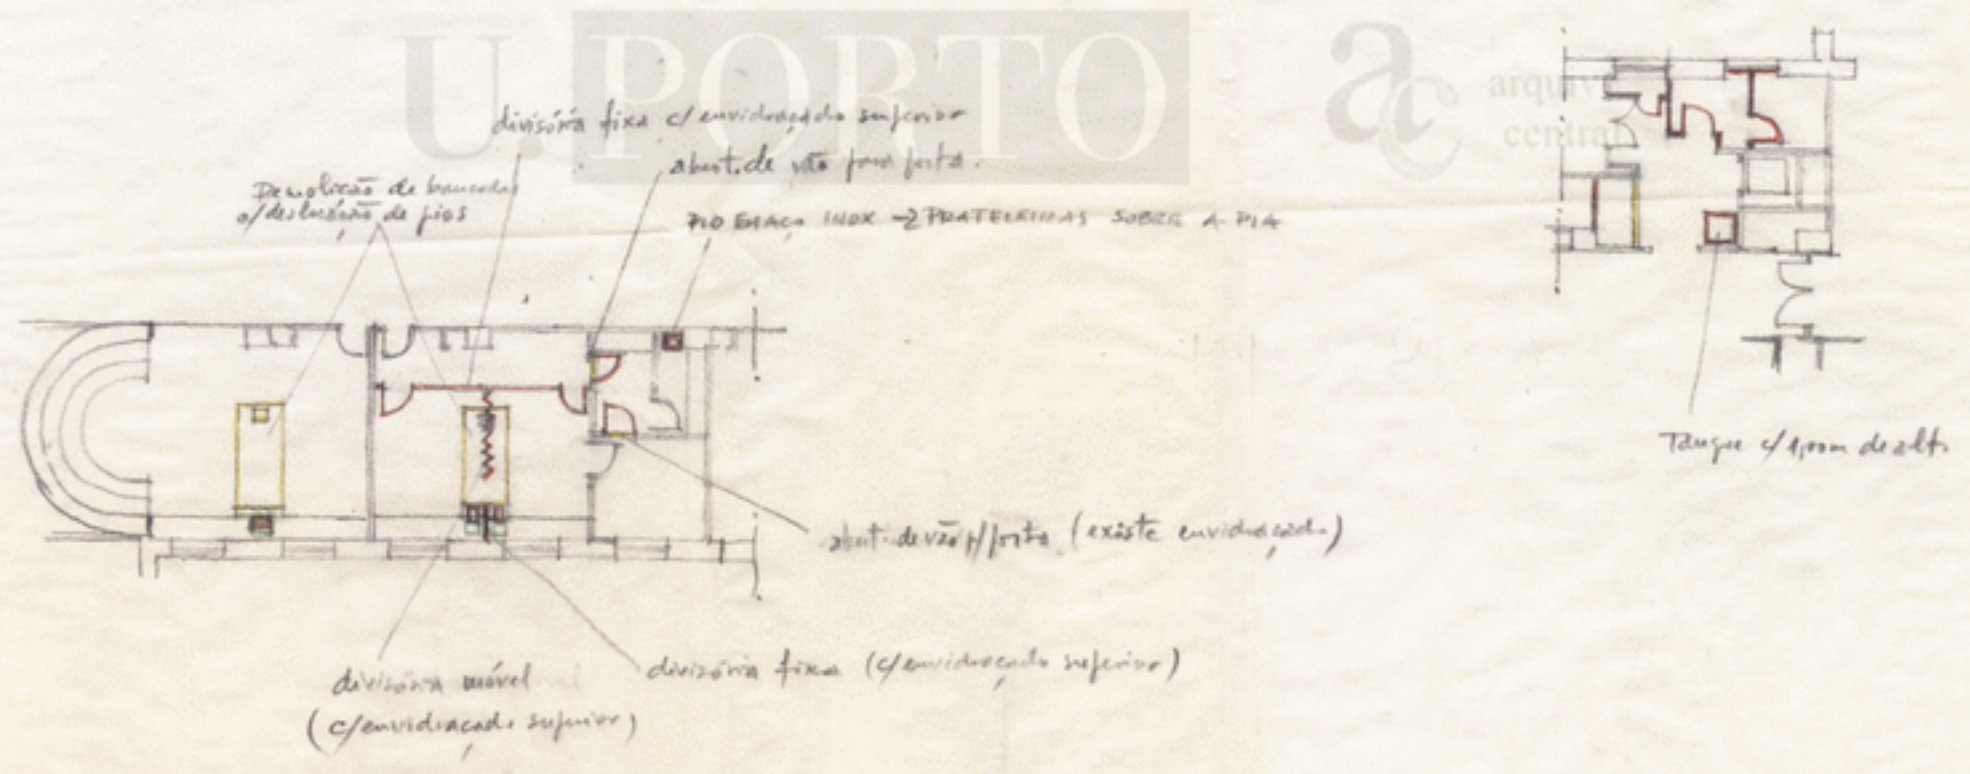 U. PORTO
ac
arquivo
central
divisória fixa c/ envidraçado superior
abert. de vão para porta.
Demolição de bancadas
c/deslocação de pios
PIO EM AÇO INOX - 2 PRATELEIRAS SOBRE A PIA
Tanque c/ 1,00m de alt.
abert. de vão p/porta (existe envidraçado)
divisória móvel
(c/envidraçado superior)
divisória fixa (c/envidraçado superior)